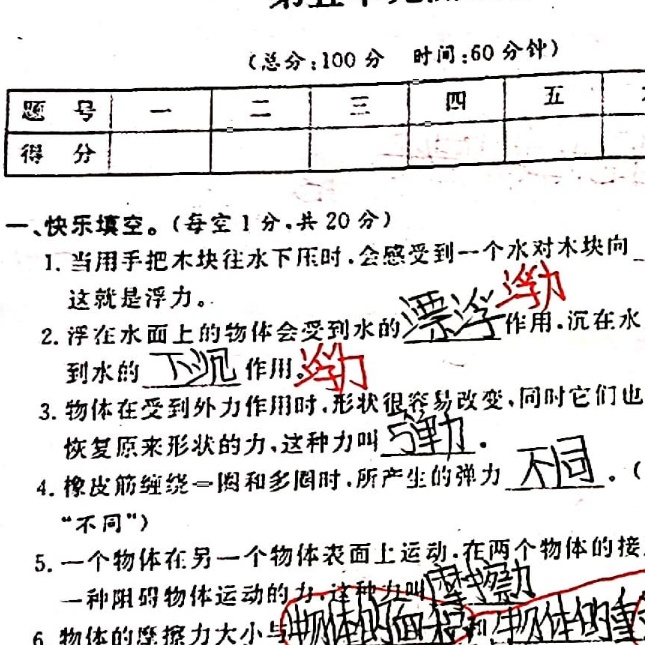 (总分:100分 时间:60分钟)
题 号 一 二 三 四 五
得 分
一、快乐填空。(每空1分,共20分)
1. 当用手把木块往水下压时,会感受到一个水对木块向
这就是浮力。
2. 浮在水面上的物体会受到水的漂浮作用,沉在水 浮力
到水的下沉作用。浮力
3. 物体在受到外力作用时,形状很容易改变,同时它们也
恢复原来形状的力,这种力叫弹力。
4. 橡皮筋缠绕一圈和多圈时,所产生的弹力不同。(
“不同”)
5. 一个物体在另一个物体表面上运动,在两个物体的接
一种阻碍物体运动的力,这种力叫
6. 物体的摩擦力大小与物体的面积和物体的重